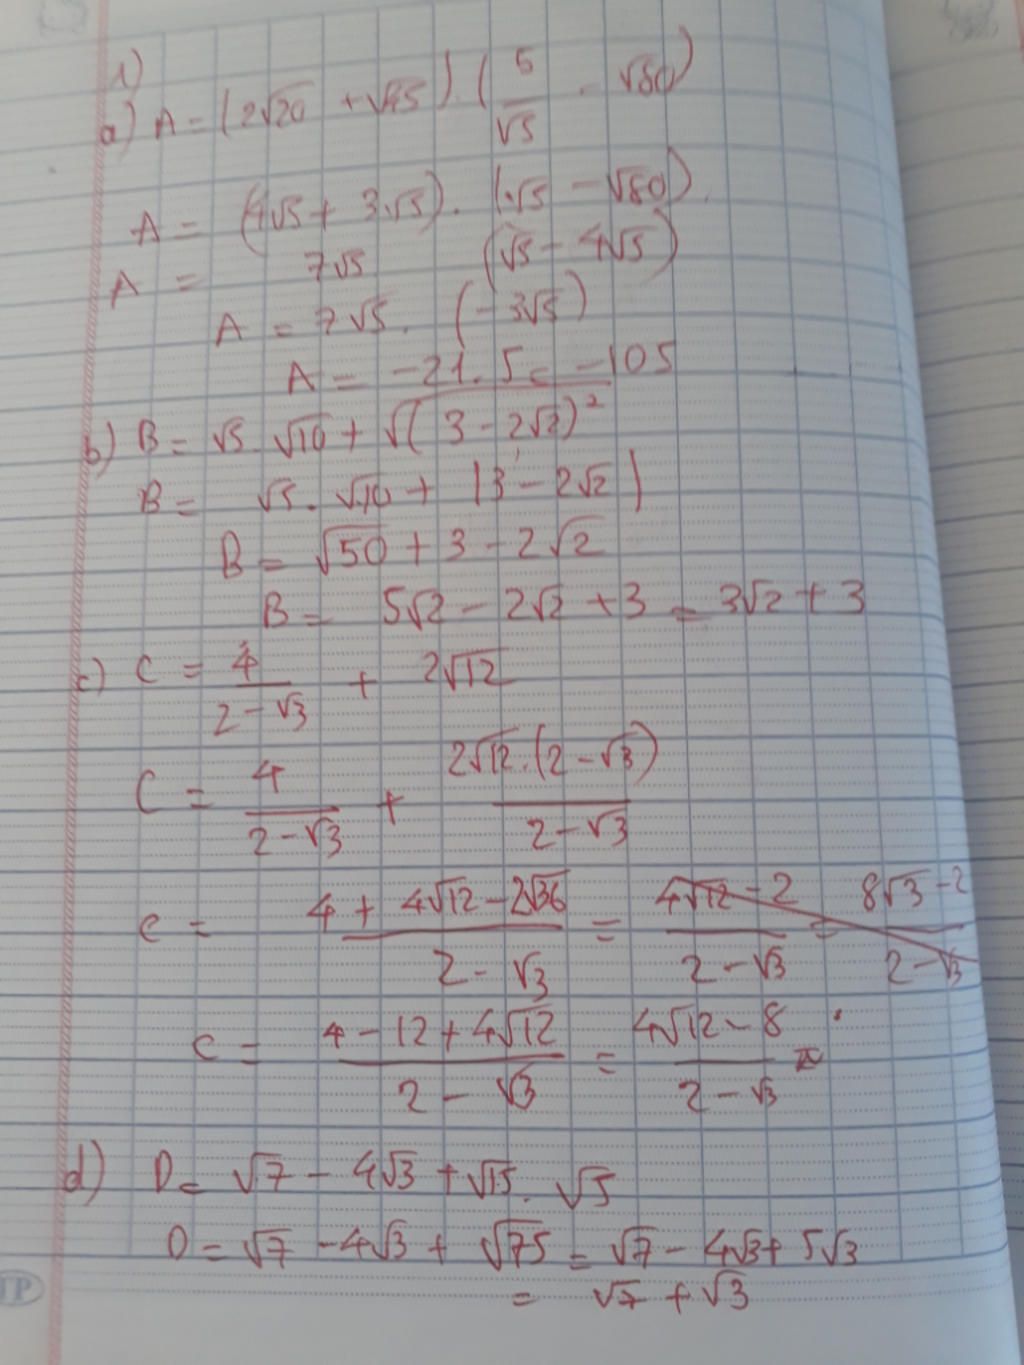 1)
a) A = (2√20 + √45) . ( 5/√5 - √80)
A = (4√5 + 3√5) . (√5 - √80).
A = 7√5 (√5 - 4√5)
A = 7√5 . (-3√5)
A = -21.5 = -105
b) B = √5 . √10 + √(3 - 2√2)²
B = √5 . √10 + |3 - 2√2|
B = √50 + 3 - 2√2
B = 5√2 - 2√2 + 3 = 3√2 + 3
c) C = 4/(2-√3) + 2√12
C = 4/(2-√3) + 2√12.(2-√3)/(2-√3)
C = (4 + 4√12 - 2√36)/(2-√3) = (4√12 - 2)/(2-√3) = (8√3 - 2)/(2-√3)
C = (4 - 12 + 4√12)/(2-√3) = (4√12 - 8)/(2-√3)
d) D = √7 - 4√3 + √15 . √5
D = √7 - 4√3 + √75 = √7 - 4√3 + 5√3
= √7 + √3
TP